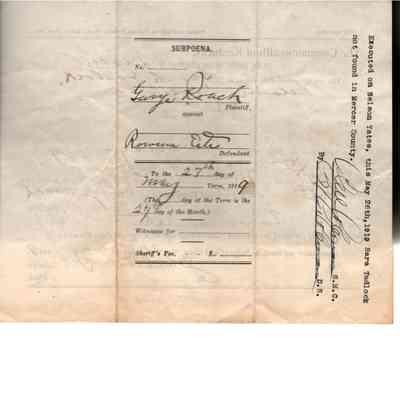 SUBPOENA.
No.
Gary Roach
Plaintiff,
against
Rowena Este
Defendant
To the 27th day of
May Term, 1919
(The day of the Term is the
27 day of the Month.)
Witnesses for
Sheriff's Fee, - - $
Executed on Nelson Yates, this May 26th, 1919 Sara Tudlock
not found in Mercer County.
S.M.C.
By D.S.